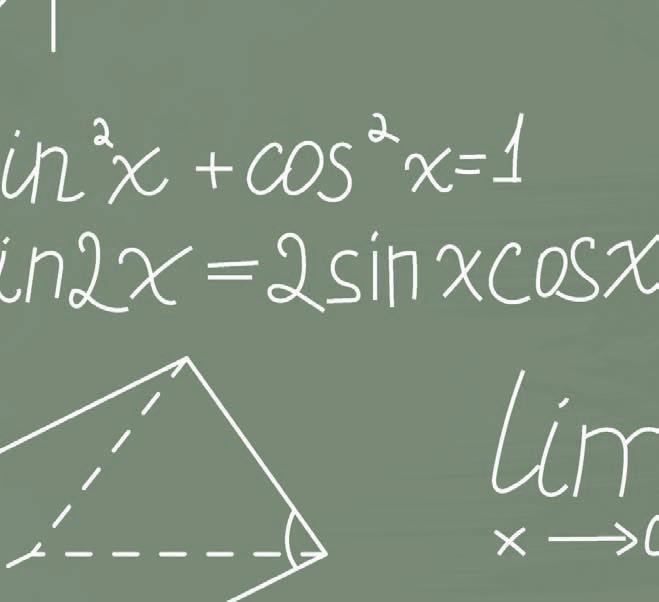 in²x + cos²x=1
in2x = 2sinxcosx
lim
x →